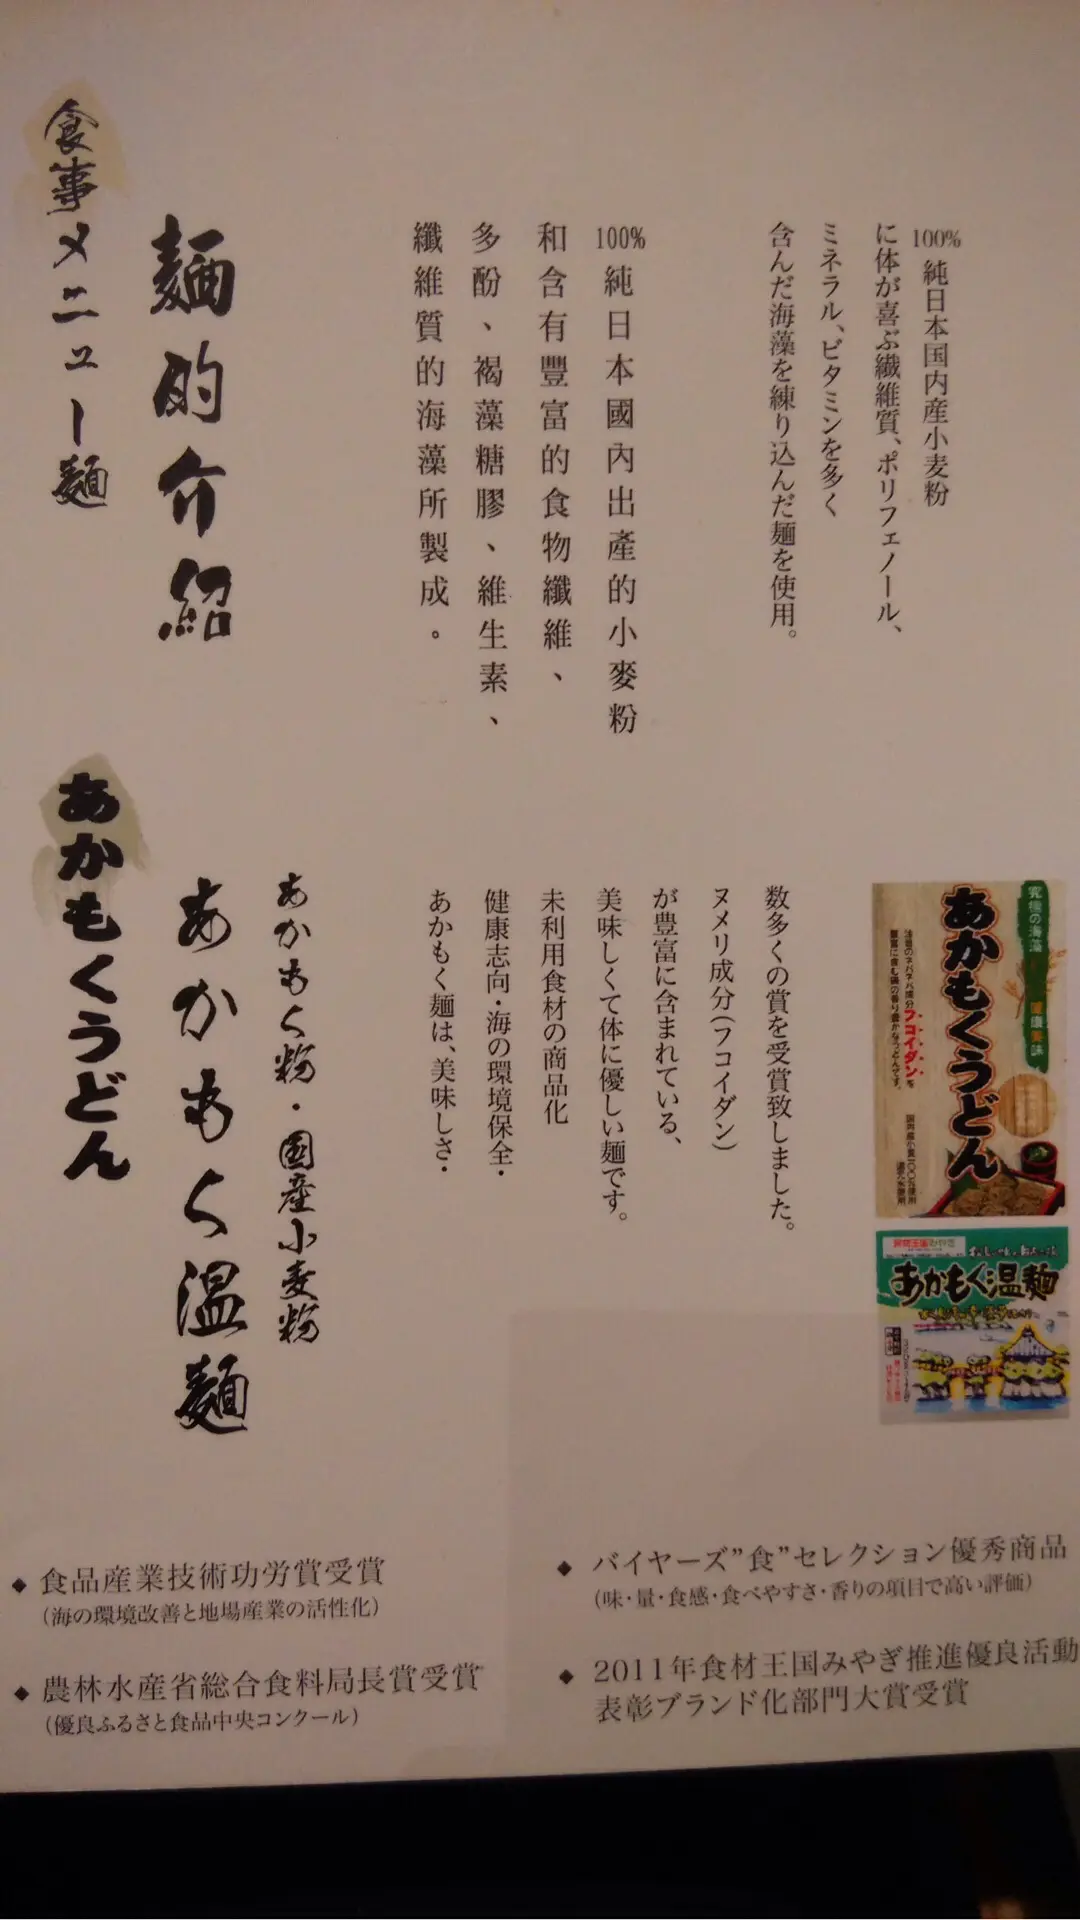 食事メニュー麺
麺的介紹
100%純日本國內出產的小麥粉
和含有豐富的食物纖維、
多酚、褐藻糖膠、維生素、
纖維質的海藻所製成。
100%純日本国内産小麦粉
に体が喜ぶ繊維質、ポリフェノール、
ミネラル、ビタミンを多く
含んだ海藻を練り込んだ麺を使用。
あかもくうどん
あかもく温麺
あかもく粉・国産小麦粉
あかもく麺は、美味しさ・
健康志向・海の環境保全・
未利用食材の商品化
美味しくて体に優しい麺です。
が豊富に含まれている、
ヌメリ成分(フコイダン)
数多くの賞を受賞致しました。
究極の海藻
健康美味
あかもくうどん
フコイダンを
あかもく温麺
◆ 食品産業技術功労賞受賞
(海の環境改善と地場産業の活性化)
◆ 農林水産省総合食料局長賞受賞
(優良ふるさと食品中央コンクール)
◆ バイヤーズ”食”セレクション優秀商品
(味・量・食感・食べやすさ・香りの項目で高い評価)
◆ 2011年食材王国みやぎ推進優良活動
表彰ブランド化部門大賞受賞